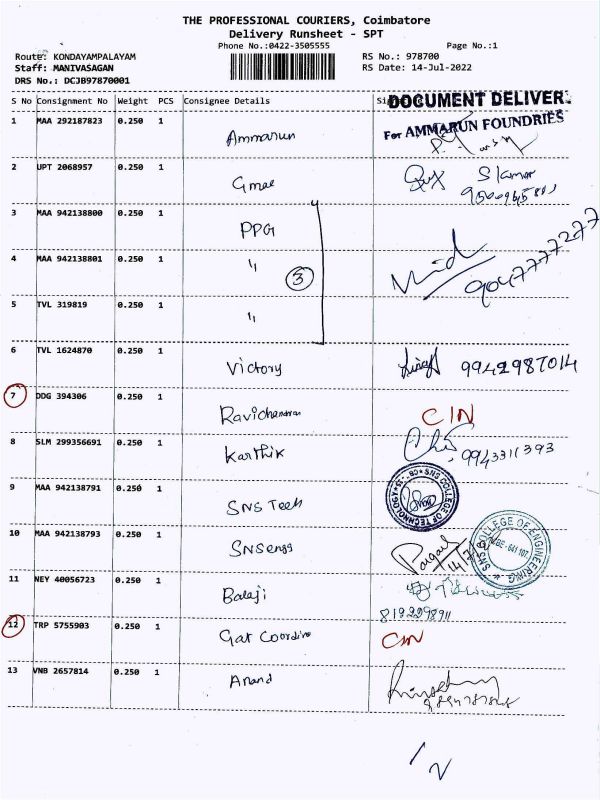 THE PROFESSIONAL COURIERS, Coimbatore
Delivery Runsheet - SPT
Phone No.:0422-3505555
Page No.:1
Route: KONDAYAMPALAYAM
RS No.: 978700
Staff: MANIVASAGAN
RS Date: 14-Jul-2022
DRS No.: DCJB97870001
S No Consignment No Weight PCS Consignee Details
DOCUMENT DELIVER
For AMMARUN FOUNDRIES
1 MAA 292187823 0.250 1 Ammarun
2 UPT 2068957 0.250 1 Gmae
3 MAA 942138800 0.250 1 PPG
4 MAA 942138801 0.250 1 "
3
9047777277
5 TVL 319819 0.250 1 "
6 TVL 1624870 0.250 1 Victory 9942987014
7 DDG 394306 0.250 1 Ravichandran CIN
8 SLM 299356691 0.250 1 Karthik 9943311393
9 MAA 942138791 0.250 1 SNS Tech
SNS COLLEGE OF TECHNOLOGY
10 MAA 942138793 0.250 1 SNS engg
SNS COLLEGE OF ENGINEERING
11 NEY 40056723 0.250 1 Balaji
12 TRP 5755903 0.250 1 CIN
13 VNB 2657814 0.250 1 Anand